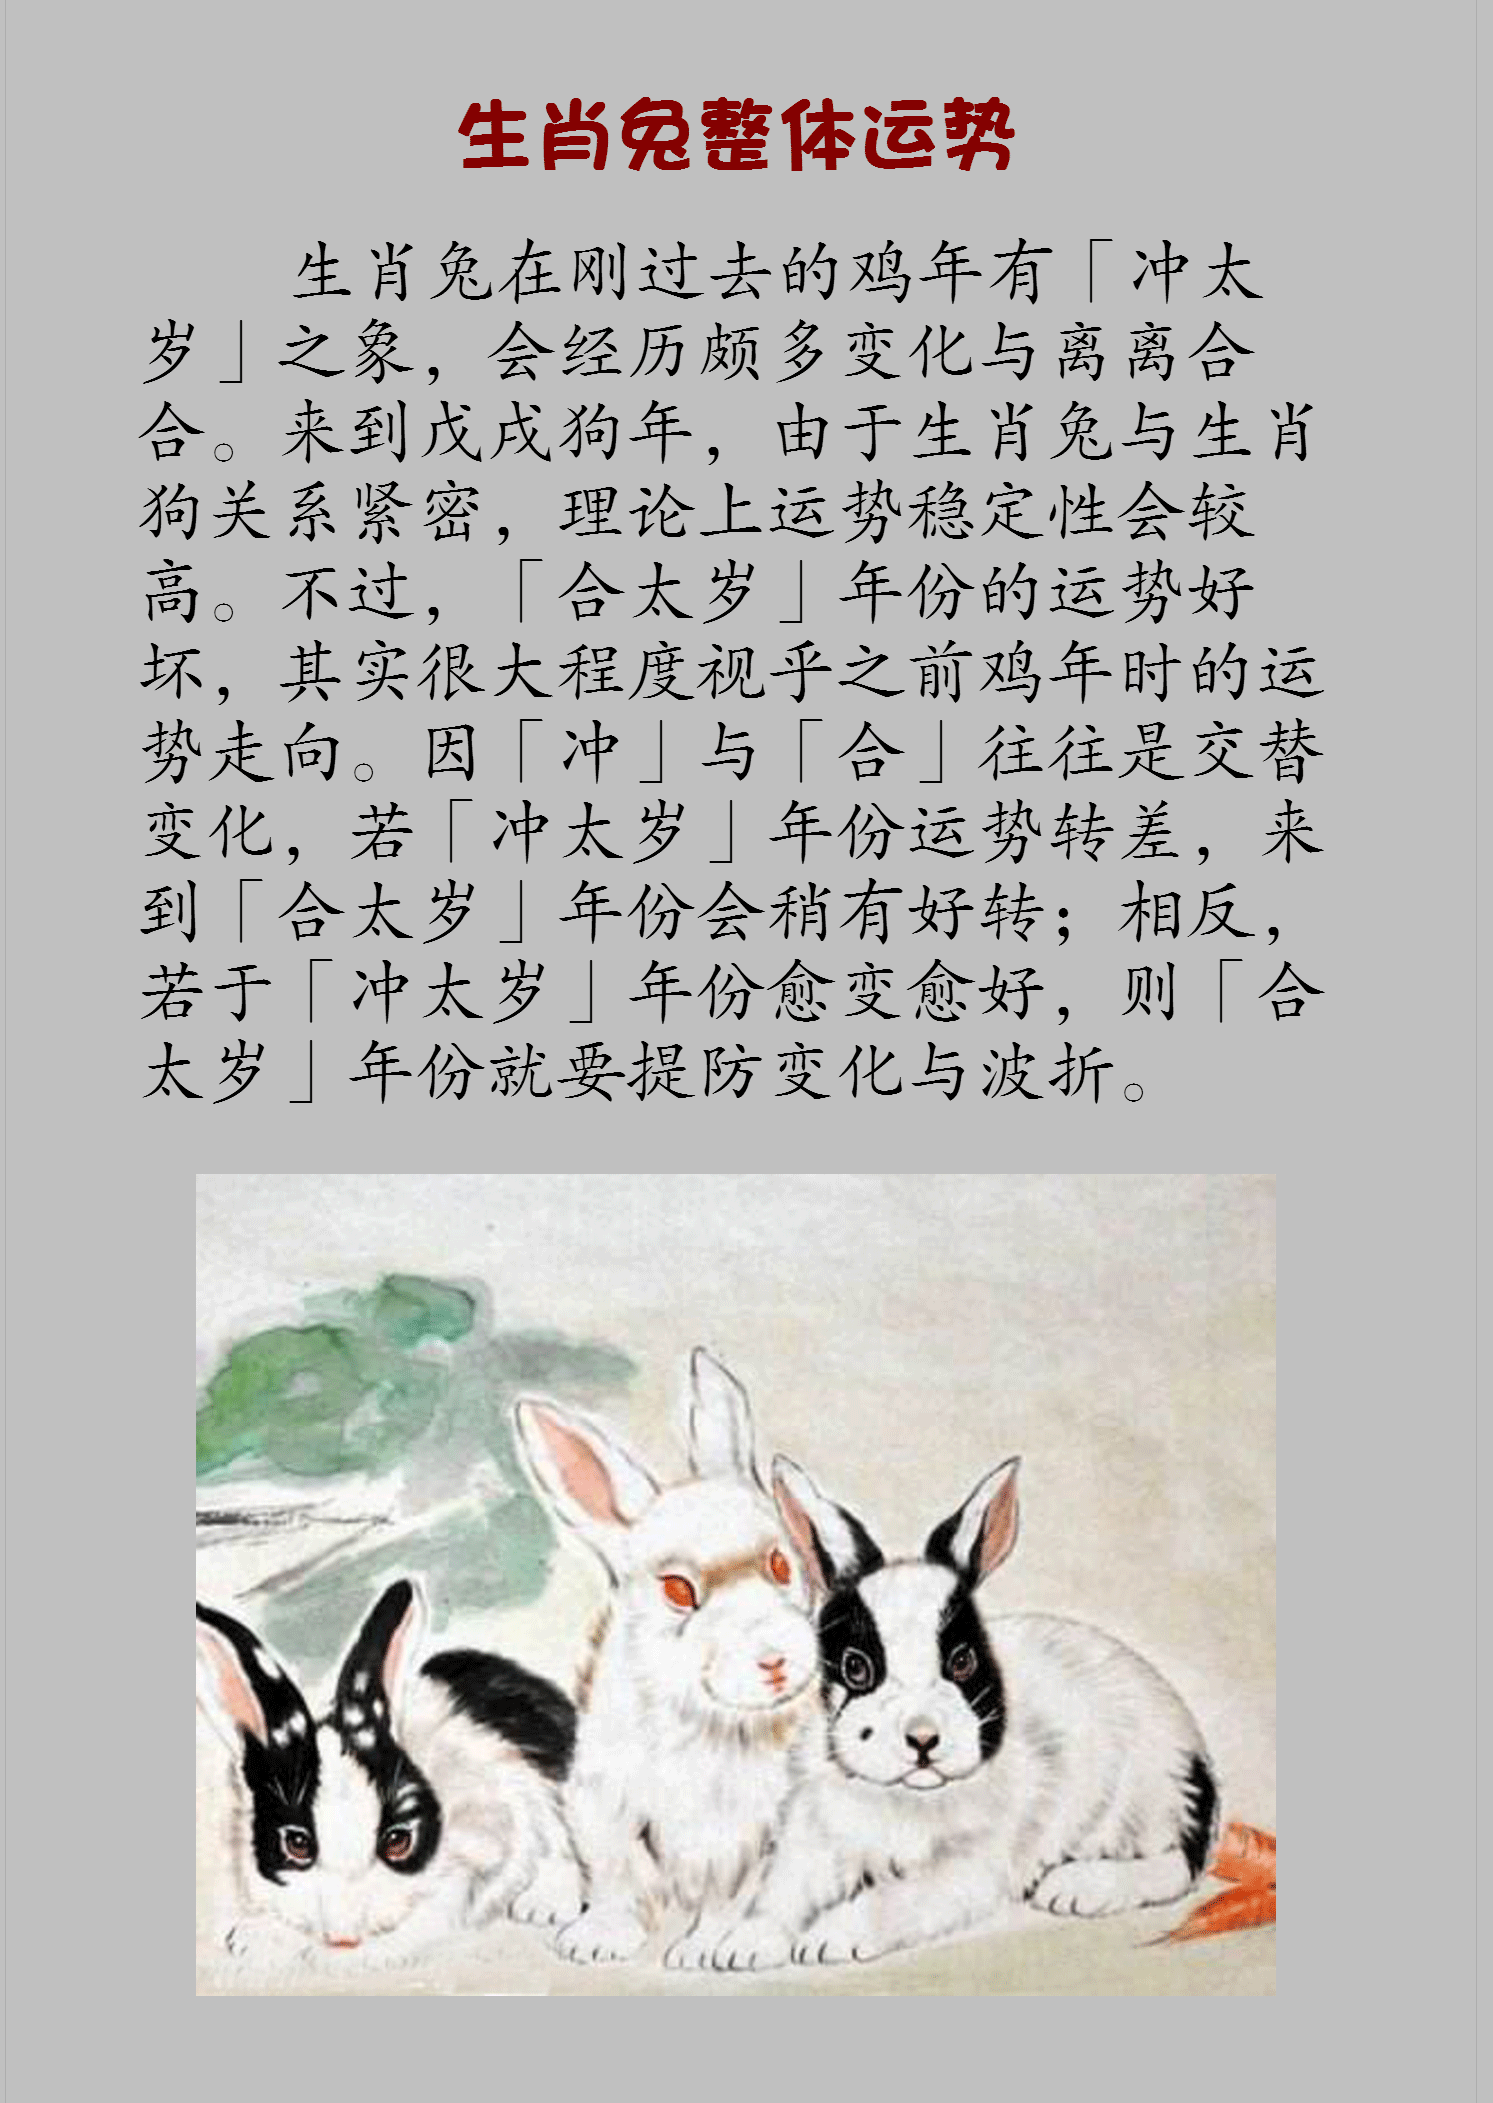 生肖兔整体运势
生肖兔在刚过去的鸡年有「冲太
岁」之象，会经历颇多变化与离离合
合。来到戊戌狗年，由于生肖兔与生肖
狗关系紧密，理论上运势稳定性会较
高。不过，「合太岁」年份的运势好
坏，其实很大程度视乎之前鸡年时的运
势走向。因「冲」与「合」往往是交替
变化，若「冲太岁」年份运势转差，来
到「合太岁」年份会稍有好转；相反，
若于「冲太岁」年份愈变愈好，则「合
太岁」年份就要提防变化与波折。